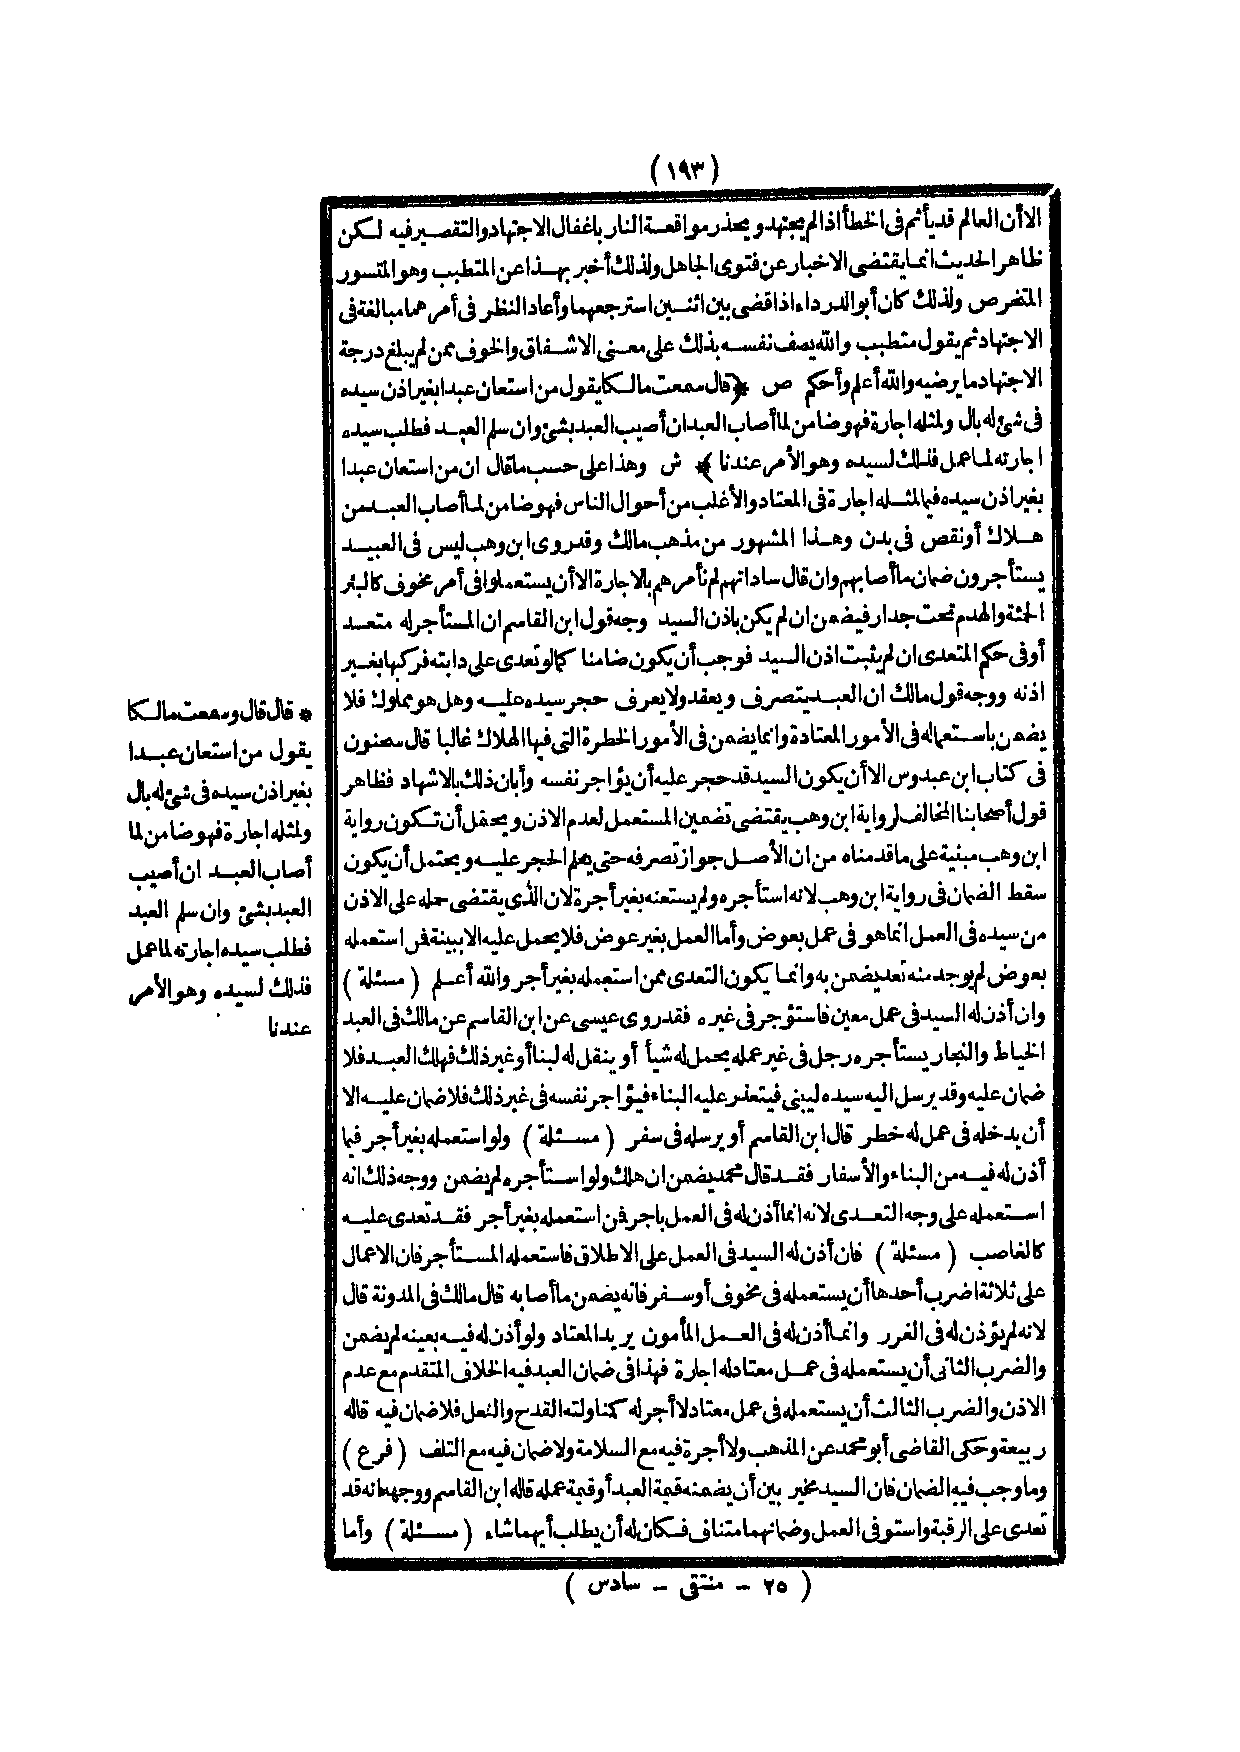 (١٩٣)
الا أن العالم قد يأثم فى الخطأ اذا لم يجتهد ويحذر مواقعة النار باغفال الاجتهاد والتقصير فيه لكن
ظاهر الحديث انما يقتضى الاخبار عن فتوى الجاهل ولذلك أخبر بهذا عن المتطبب وهو المتسور
المتخرص ولذلك كان أبو الدرداء اذا قضى بين اثنين استرجعهما وأعاد النظر فى أمرهما مبالغة فى
الاجتهاد ثم يقول متطبب والله يصف نفسه بذلك على معنى الاشفاق والخوف ممن لم يبلغ درجة
الاجتهاد ما يرضيه والله أعلم وأحكم ص * ﴿قال سمعت مالكا يقول من استعان عبدا بغير اذن سيده
فى شئ له بال ولمثله اجارة فهو ضامن لما أصاب العبد ان أصيب العبد بشئ وان سلم العبد فطلب سيده
اجارته لما عمل فذلك لسيده وهو الأمر عندنا ﴾ ش وهذا على حسب ما قال ان من استعان عبدا
بغير اذن سيده فيما لمثله اجارة فى المعتاد والأغلب من أحوال الناس فهو ضامن لما أصاب العبد من
هلاك أو نقص فى بدن وهذا المشهور من مذهب مالك وقد روى ابن وهب ليس فى العبيد
يستأجرون ضمان ما أصابهم وان قال ساداتهم لم نأمرهم بالاجارة الا أن يستعملوا فى أمر مخوف كالبئر
الحمئة والهدم تحت جدار فيضمن ان لم يكن باذن السيد وجه قول ابن القاسم ان المستأجر له متعد
أو فى حكم المتعدى ان لم يثبت اذن السيد فوجب أن يكون ضامنا كما لو تعدى على دابته فركبها بغير
اذنه ووجه قول مالك ان العبد يتصرف ويعقد ولا يعرف حجر سيده عليه وهل هو مملوك فلا
يضمن باستعماله فى الأمور المعتادة وانما يضمن فى الأمور الخطرة التى فيها الهلاك غالبا قال سحنون
فى كتاب ابن عبدوس الا أن يكون السيد قد حجر عليه أن يؤاجر نفسه وأبان ذلك بالاشهاد فظاهر
قول أصحابنا المخالف لرواية ابن وهب يقتضى تضمين المستعمل لعدم الاذن ويحتمل أن تكون رواية
ابن وهب مبنية على ما قدمناه من ان الأصل جواز تصرفه حتى يعلم الحجر عليه ويحتمل أن يكون
سقط الضمان فى رواية ابن وهب لانه استأجره ولم يستعنه بغير أجرة لان الذى يقتضى حمله على الاذن
من سيده فى العمل انما هو فى عمل بعوض وأما العمل بغير عوض فلا يحمل عليه الا ببينة فمن استعمله
بعوض لم يوجد منه تعد يضمن به وانما يكون التعدى ممن استعمله بغير أجر والله أعلم ( مسئلة )
وان أذن له السيد فى عمل معين فاستؤجر فى غيره فقد روى عيسى عن ابن القاسم عن مالك فى العبد
الخياط والنجار يستأجره رجل فى غير عمله يحمل له شيأ أو ينقل له لبنا أو غير ذلك فهلك العبد فلا
ضمان عليه وقد يرسل اليه سيده ليبنى فيتعذر عليه البناء فيؤاجر نفسه فى غير ذلك فلا ضمان عليه الا
أن يدخله فى عمل له خطر قال ابن القاسم أو يرسله فى سفر ( مسئلة ) ولو استعمله بغير أجر فيما
أذن له فيه من البناء والأسفار فقد قال محمد يضمن ان هلك ولو استأجره لم يضمن ووجه ذلك انه
استعمله على وجه التعدى لانه انما أذن له فى العمل باجر فمن استعمله بغير أجر فقد تعدى عليه
كالغاصب ( مسئلة ) فان أذن له السيد فى العمل على الاطلاق فاستعمله المستأجر فان الاعمال
على ثلاثة اضرب أحدها أن يستعمله فى مخوف أو سفر فانه يضمن ما أصابه قال مالك فى المدونة قال
لانه لم يؤذن له فى الغرر وانما أذن له فى العمل المأمون يريد المعتاد ولو أذن له فيه بعينه لم يضمن
والضرب الثانى أن يستعمله فى عمل معتاد له اجارة فهذا فى ضمان العبد فيه الخلاف المتقدم مع عدم
الاذن والضرب الثالث أن يستعمله فى عمل معتاد لا أجر له كمناولته القدح والنعل فلا ضمان فيه قاله
ربيعة وحكى القاضى أبو محمد عن المذهب ولا أجرة فيه مع السلامة ولا ضمان فيه مع التلف ( فرع )
وما وجب فيه الضمان فان السيد مخير بين أن يضمنه قيمة العبد أو قيمة عمله قاله ابن القاسم ووجهه انه قد
تعدى على الرقبة واستوفى العمل وضمانهما متناف فكان له أن يطلب أيهما شاء ( مسئلة ) وأما
* قال قال وسمعت مالكا
يقول من استعان عبدا
بغير اذن سيده فى شئ له بال
ولمثله اجارة فهو ضامن لما
أصاب العبد ان أصيب
العبد بشئ وان سلم العبد
فطلب سيده اجارته لما عمل
فذلك لسيده وهو الأمر
عندنا
( ٢٥ - منتقى - سادس )